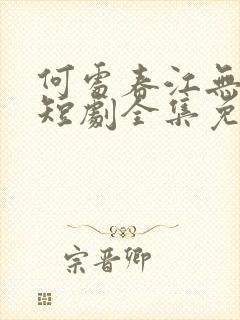 何處春江無
短劇全集免
宗晋卿